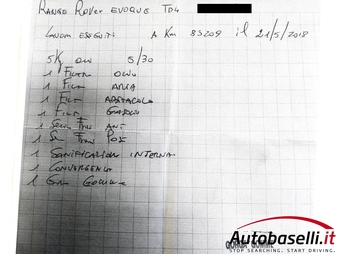 RANGE ROVER EVOQUE TD4
LAVORI ESEGUITI A KM 83209 il 21/5/2018
5Kg OLIO 5/30
1 FILTRO OLIO
1 FILTRO ARIA
1 FILTRO ABITACOLO
1 FILTRO GASOLIO
1 SERIE FRENI ANT
1 SE FRENI POST
1 SANIFICAZIONE INTERNA
1 CONVERGENZA
1 GOMME
Autobaselli.it
STOP SEARCHING. START DRIVING.